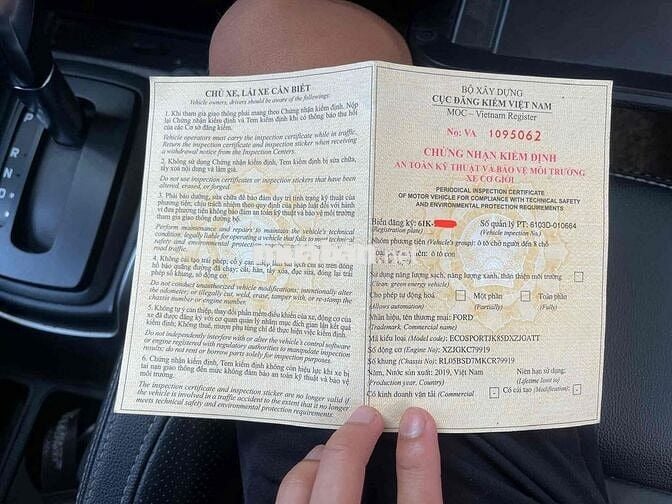 CHỦ XE, LÁI XE CẦN BIẾT
Vehicle owners, drivers should be aware of the followings:
1. Khi tham gia giao thông phải mang theo Chứng nhận kiểm định. Nộp
lại Chứng nhận kiểm định và Tem kiểm định khi có thông báo thu hồi
của các Cơ sở đăng kiểm.
Vehicle operators must carry the inspection certificate while in traffic.
Return the inspection certificate and inspection sticker when receiving
a withdrawal notice from the Inspection Centers.
2. Không sử dụng Chứng nhận kiểm định, Tem kiểm định bị sửa chữa,
tẩy xoá nội dung và làm giả.
Do not use inspection certificates or inspection stickers that have been
altered, erased, or forged.
3. Phải bảo dưỡng, sửa chữa để bảo đảm duy trì tình trạng kỹ thuật của
phương tiện; chịu trách nhiệm theo quy định của pháp luật đối với hành
vi đưa phương tiện không bảo đảm an toàn kỹ thuật và bảo vệ môi trường
tham gia giao thông đường bộ.
Perform maintenance and repairs to maintain the vehicle's technical
condition; legally liable for operating a vehicle that fails to meet technical
safety and environmental protection
road traffic.
4. Không cải tạo trái phép; cố ý can thiệp làm sai lệch chỉ số trên đồng
hồ báo quãng đường đã chạy; cắt, hàn, tẩy xóa, đục sửa, đóng lại trái
phép số khung, số động cơ.
Do not conduct unauthorized vehicle modifications; intentionally alter
the odometer; or illegally cut, weld, erase, tamper with, or re-stamp the
chassis number or engine number.
5. Không tự ý can thiệp, thay đổi phần mềm điều khiển của xe, động cơ của
xe đã được đăng ký với cơ quan quản lý nhằm mục đích gian lận kết quả
kiểm định; Không thuê, mượn phụ tùng chỉ để thực hiện việc kiểm định.
Do not independently interfere with or alter the vehicle's control software
or engine registered with regulatory authorities to manipulate inspection
results; do not rent or borrow parts solely for inspection purposes.
6. Chứng nhận kiểm định, Tem kiểm định không còn hiệu lực khi xe bị
tai nạn giao thông đến mức không đảm bảo an toàn kỹ thuật và bảo vệ
môi trường.
The inspection certificate and inspection sticker are no longer valid if
the vehicle is involved in a traffic accident to the extent that it no longer
meets technical safety and environmental protection requirements.
BỘ XÂY DỰNG
CỤC ĐĂNG KIỂM VIỆT NAM
MOC – Vietnam Register
No: VA 1095062
CHỨNG NHẬN KIỂM ĐỊNH
AN TOÀN KỸ THUẬT VÀ BẢO VỆ MÔI TRƯỜNG
XE CƠ GIỚI
PERIODICAL INSPECTION CERTIFICATE
OF MOTOR VEHICLE FOR COMPLIANCE WITH TECHNICAL SAFETY
AND ENVIRONMENTAL PROTECTION REQUIREMENTS
Biển đăng ký: 61K- Số quản lý PT: 6103D-010664
(Registration plate) (Vehicle inspection No.)
Nhóm phương tiện (Vehicle's group): ô tô chở người đến 8 chỗ
ô tô con
Sử dụng năng lượng sạch, năng lượng xanh, thân thiện môi trường
(Clean, green energy vehicle)
Cho phép tự động hoá Một phần Toàn phần
(Allows automation) (Partially) (Fully)
Nhãn hiệu, tên thương mại: FORD
(Trademark, Commercial name)
Mã kiểu loại (Model code): ECOSPORTJK85DXZJGATT
Số động cơ (Engine No): XZJGKC79919
Số khung (Chassis No): RL05BSD7MKCR79919
Năm, Nước sản xuất: 2019, Việt Nam Niên hạn sử dụng:
(Production year, Country) (Lifetime limit to)
Có kinh doanh vận tải (Commercial - Có cải tạo (Modification) -
P
R
N
D